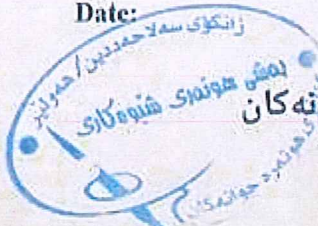 Date:
زانکۆی سەلاحەددین/هەولێر
بەشی هونەری شێوەکاری
هونەرە جوانەکان